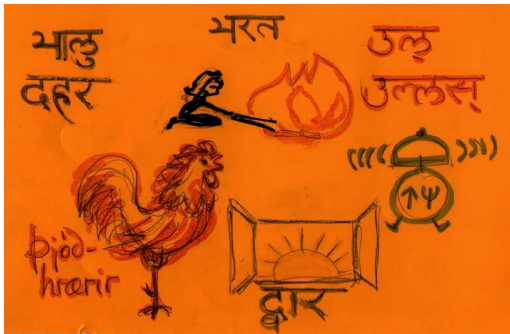 भालु
दहर
भरत
उल्
उल्लस्
þjóð-
hrærir
द्वार